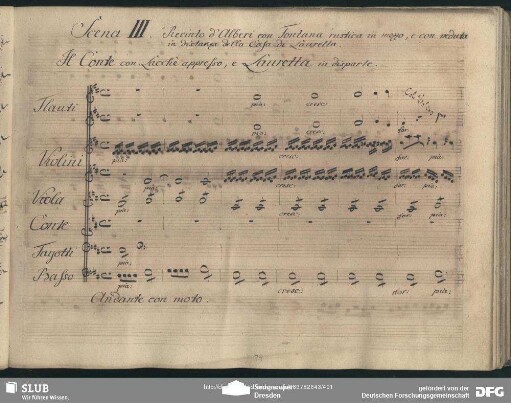 Scena III. Recinto d'Alberi con Fontana rustica in mezo, e con veduta
in distanza della Casa di Lauretta.
Il Conte con Licchè appresso, e Lauretta in disparte.
Flauti
pia: cresc:
pia: cresc: for:
Violini
pia: cresc: for: pia:
pia: cresc: for: pia:
Viola
pia: cresc: for: pia:
Conte
Fagotti
pia:
Basso
pia: cresc: for: pia:
Andante con moto.
SLUB
Wir führen Wissen.
Dresden
gefördert von der
Deutschen Forschungsgemeinschaft
DFG